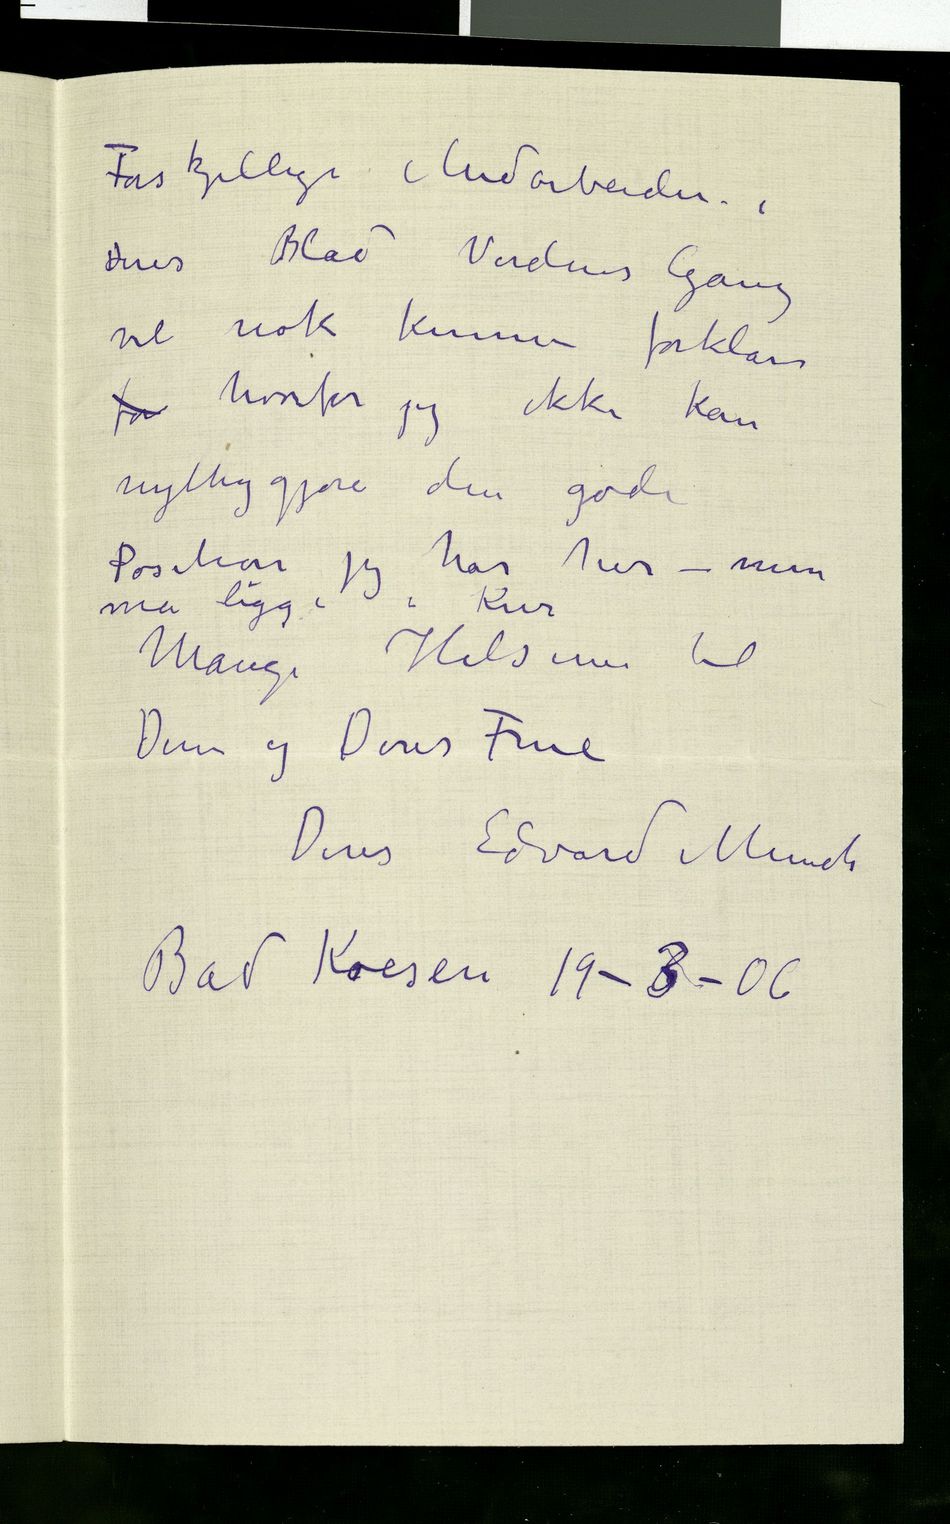 Forskjellige Medarbeider i
deres Blad Verdens Gang
vil nok kunne forklare
for hvorfor jeg ikke kan
nyttiggjøre den gode
Position jeg har her – men
må ligge i Kur
Mange Hilsener til
Dem og Deres Frue
Deres Edvard Munch
Bad Koesen 19–3–06